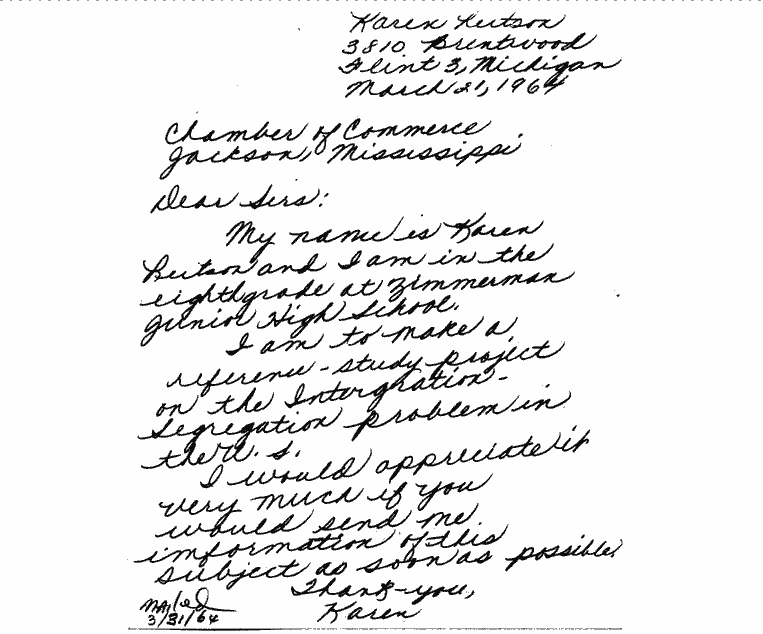 Karen
3810 Brentwood
Flint 3, Michigan
March 21, 1964
Chamber of Commerce
Jackson, Mississippi
Dear Sirs:
My name is Karen
and I am in the
eighth grade at Zimmerman
Junior High School.
I am to make a
reference-study project
on the Intergration-
Segregation problem in
the U. S.
I would appreciate it
very much if you
would send me
imformation of this
subject as soon as possible.
Thank-you,
Karen
Mailed
3/31/64